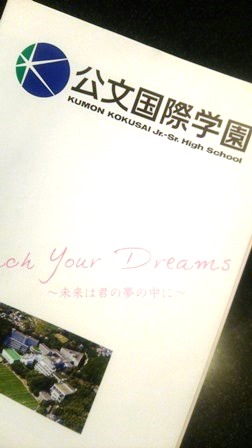 公文国際学園
KUMON KOKUSAI Jr.-Sr. High School
Your Dreams
〜未来は君の夢の中に〜